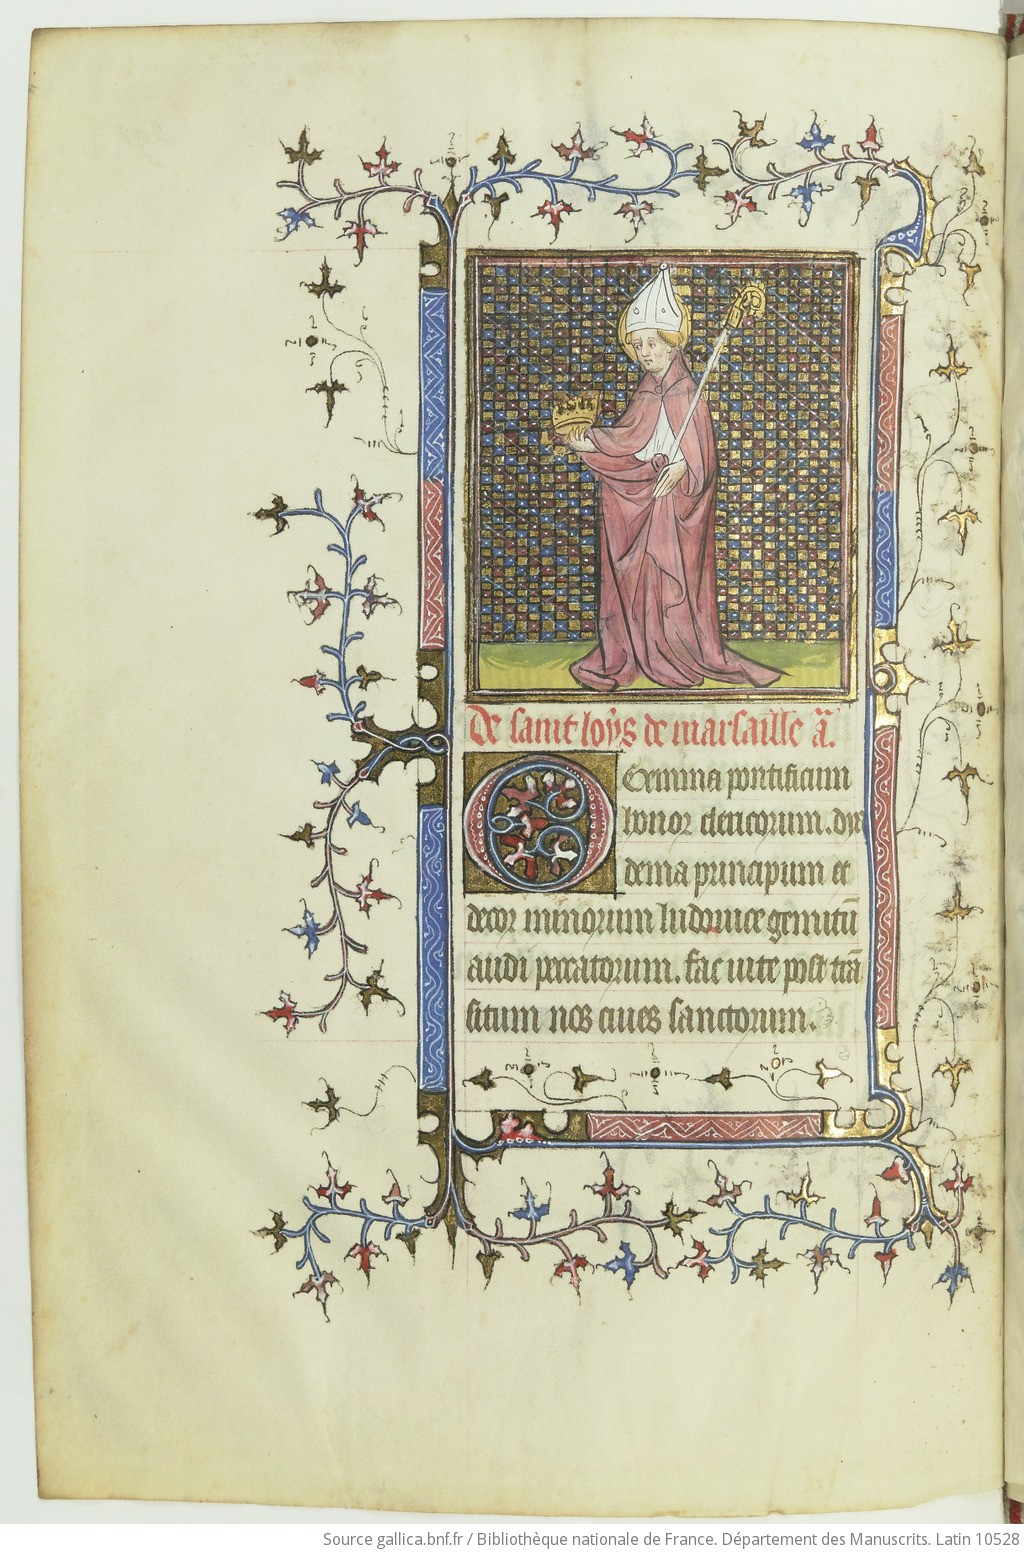 De saint loys de marsaille a̅.
O Gemma pontificum
honor clericorum. dya
dema principum et
decor minorum ludouice gemitū
audi peccatorum. fac uite post trā
situm nos ciues sanctorum.
Source gallica.bnf.fr / Bibliothèque nationale de France. Département des Manuscrits. Latin 10528